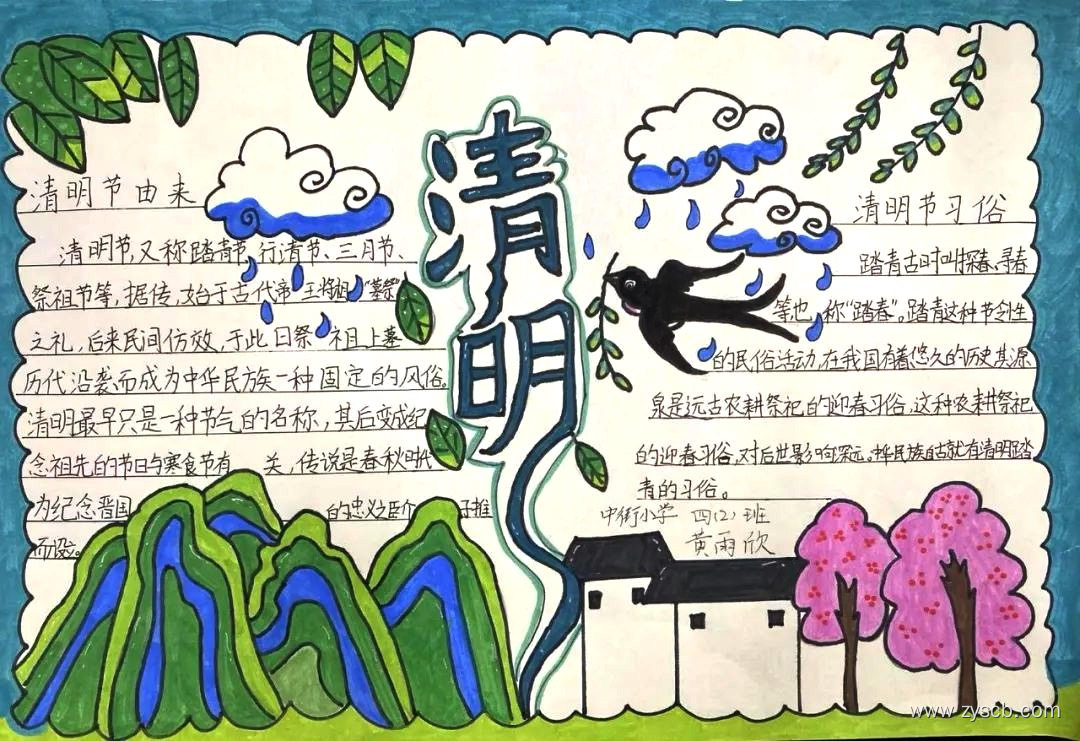 清明
清明节由来
清明节,又称踏青节、行清节、三月节、
祭祖节等,据传,始于古代帝王将相"墓祭"
之礼,后来民间仿效,于此日祭祖上墓
历代沿袭而成为中华民族一种固定的风俗。
清明最早只是一种节气的名称,其后变成纪
念祖先的节日与寒食节有关,传说是春秋时代
为纪念晋国的忠义之臣介子推
而设立。
清明节习俗
踏青古时叫探春、寻春
等也,称"踏春"。踏青这种节令性
的民俗活动,在我国有着悠久的历史其源
泉是远古农耕祭祀的迎春习俗,这种农耕祭祀
的迎春习俗,对后世影响深远。华民族自古就有清明踏
青的习俗。
中街小学 四(2)班
黄雨欣
www.zyscb.com